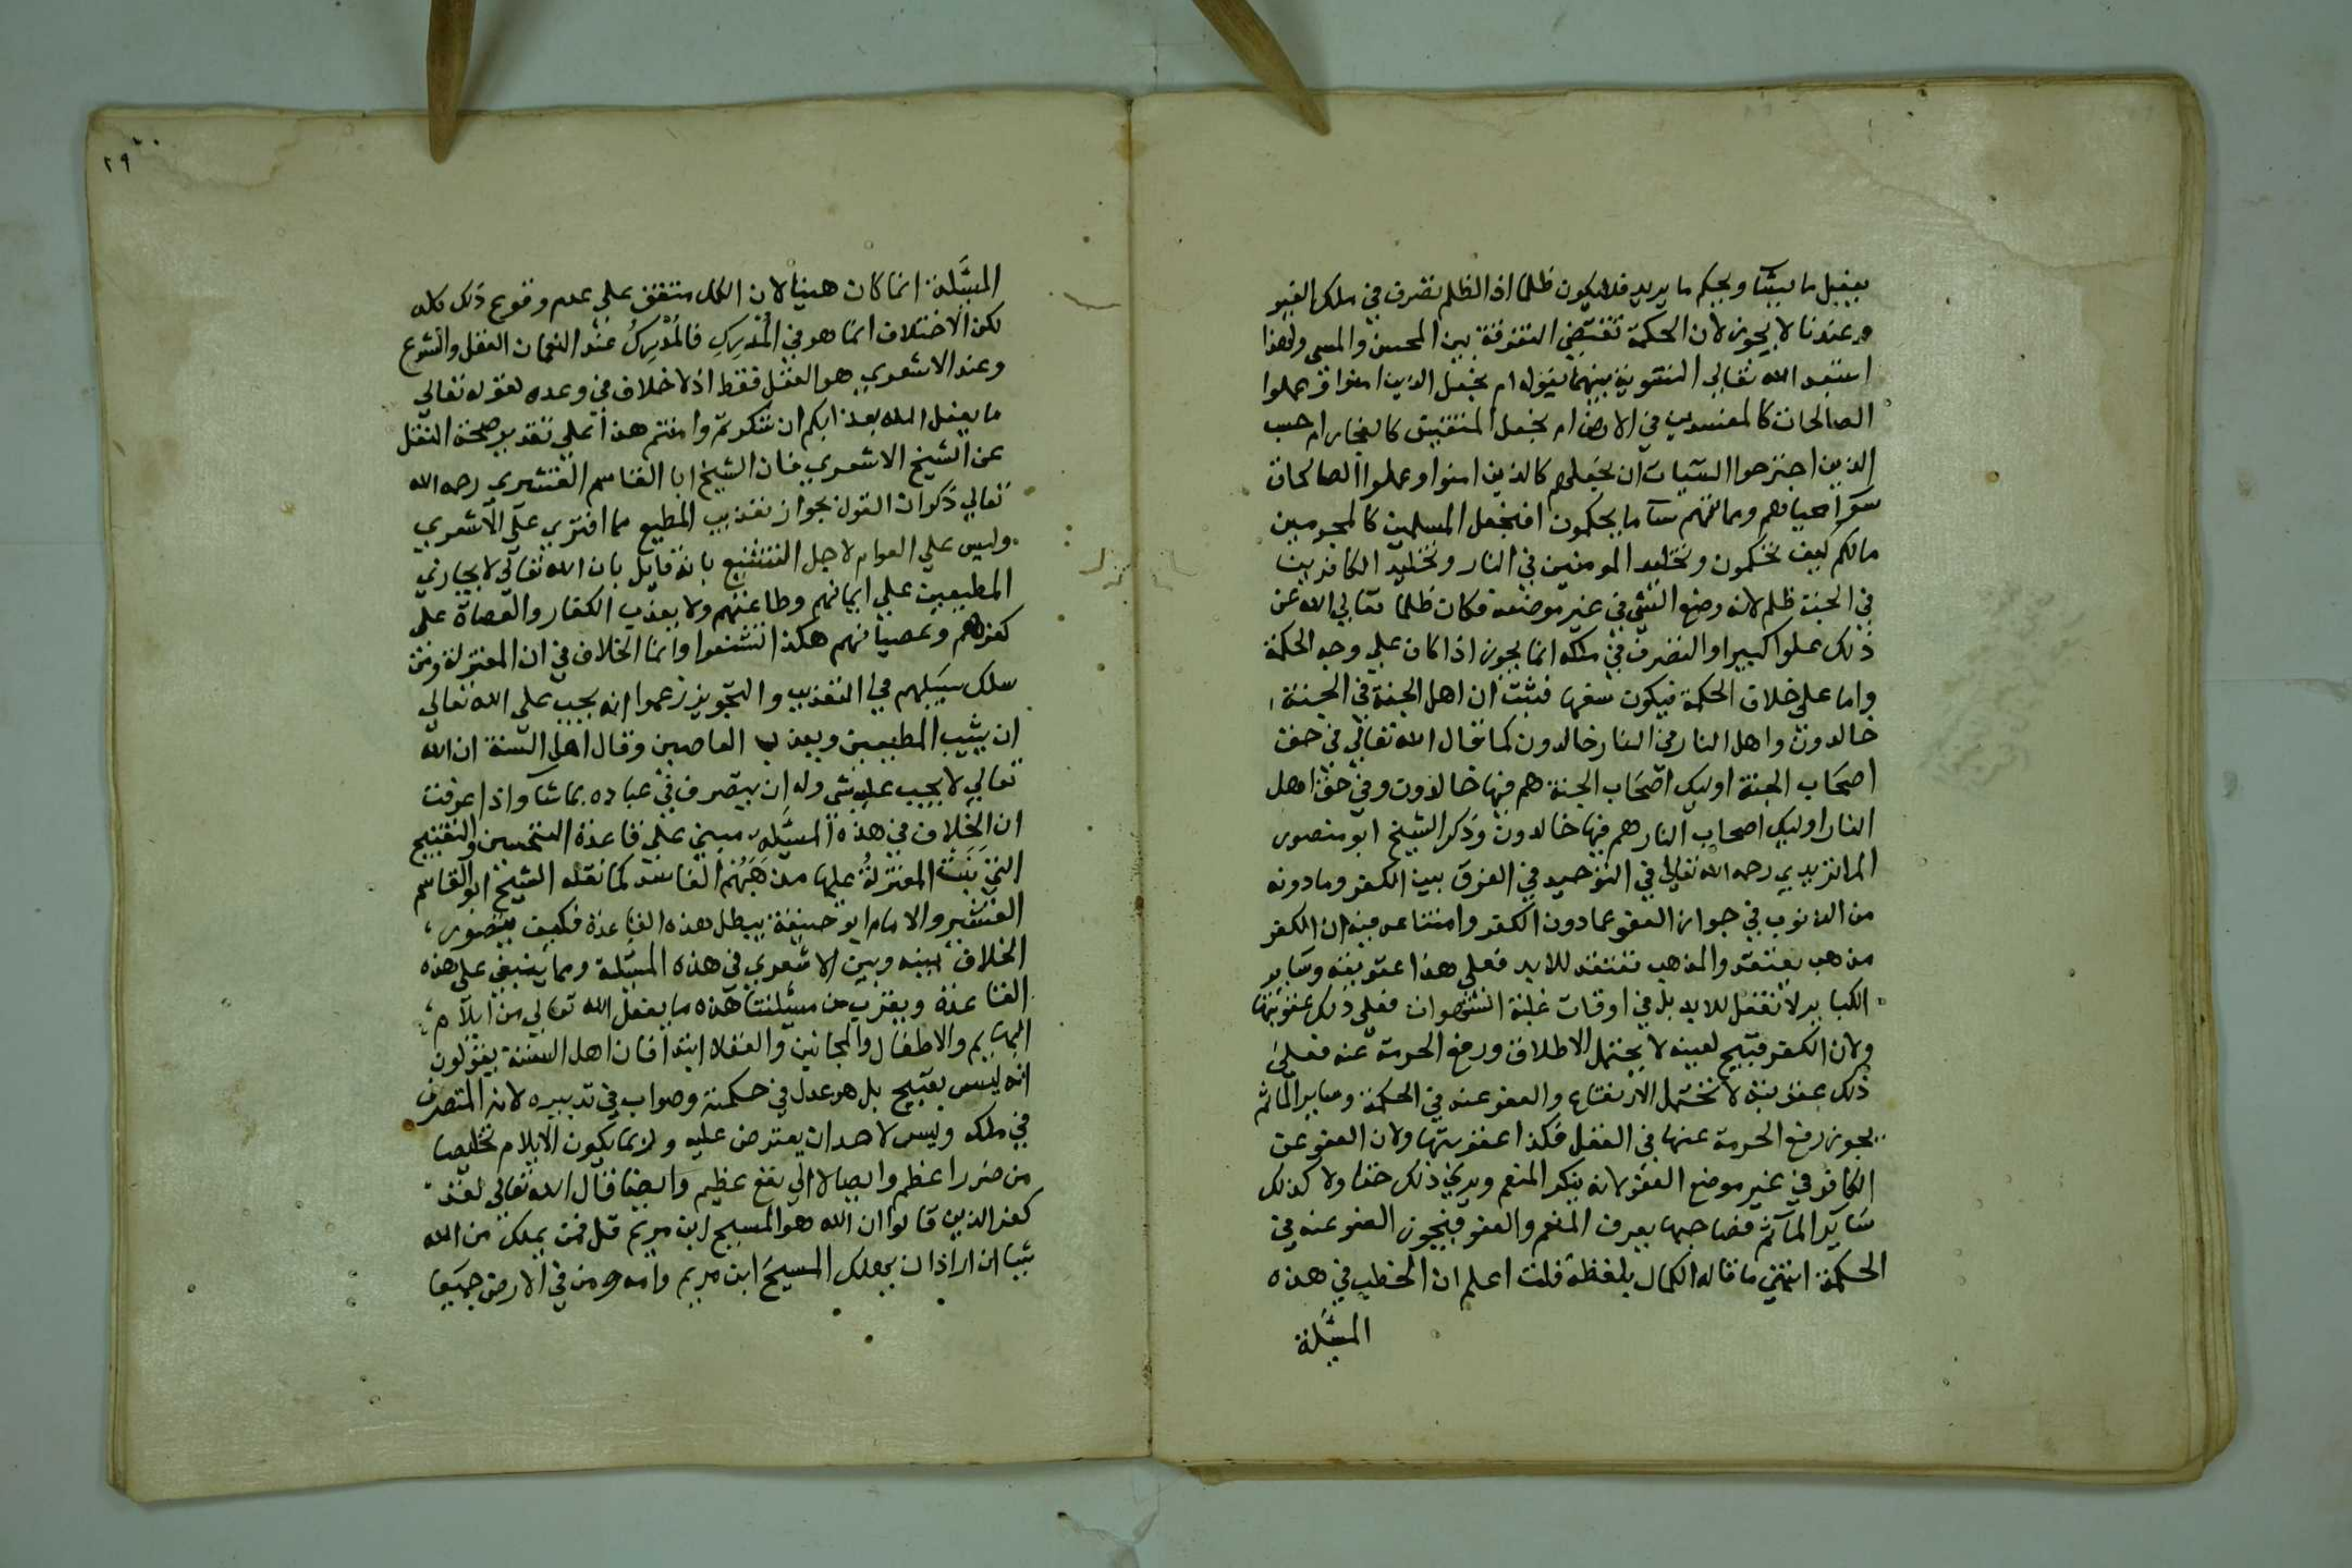 يفعل ما يشآ ويحكم ما يريد فلا يكون ظلما اذ الظلم تصرف في ملك الغير
وعندنا لا يجوز لان الحكمة تقتضي التفرقة بين المحسن والمسي ولهذا
استبعد الله تعالي التسوية بينهما بقوله ام نجعل الذين امنوا وعملوا
الصالحات كالمفسدين في الارض ام نجعل المتقين كالفجار ام حسب
الذين اجترحوا السيات ان نجعلهم كالذين امنوا وعملوا الصالحات
سوآ محياهم ومماتهم سآ ما يحكمون افنجعل المسلمين كالمجرمين
مالكم كيف تحكمون وتخليد المومنين في النار وتخليد الكافرين
في الجنة ظلم لانه وضع الشي في غير موضعه فكان ظلما تعالي الله عن
ذلك علوا كبيرا والتصرف في ملكه انما يجوز اذا كان علي وجه الحكمة
واما علي خلاف الحكمة فيكون سفها فثبت ان اهل الجنة في الجنة
خالدون واهل النار في النار خالدون كما قال الله تعالي في حق
اصحاب الجنة اوليك اصحاب الجنة هم فيها خالدون وفي حق اهل
النار اوليك اصحاب النار هم فيها خالدون وذكر الشيخ ابو منصور
الماتريدي رحمه الله تعالي في التوحيد في الفرق بين الكفر وما دونه
من الذنوب في جواز العفو عما دون الكفر وامتناعه فيه ان الكفر
مذهب يعتقد والمذهب تعتقد للابد فعلي هذا عقوبته وساير
الكباير لا تفعل للابد بل في اوقات غلبة الشهوات فعلي ذلك عقوبتها
ولان الكفر قبيح لعينه لا يحتمل الاطلاق ورفع الحرمة عنه فعلي
ذلك عقوبته لا تحتمل الارتفاع والعفو عنه في الحكمة وساير المآثم
يجوز رفع الحرمة عنها في العقل فكذا عقوبتها ولان العفو عن
الكافر في غير موضع العفو لانه ينكر المنعم ويري ذلك حقا ولا كذلك
سآير المآثم فصاحبها يعرف المنعم والعفو فيجوز العفو عنه في
الحكمة انتهي ما قاله الكمال بلفظه قلت اعلم ان الخطب في هذه
المسئلة
٢٩
المسئلة انما كان هينا لان الكل متفق علي عدم وقوع ذلك كله
لكن الاختلاف انما هو في المُدْرِكِ فالمُدْرِكُ عند النعمان العقل والشرع
وعند الاشعري هو العقل فقط اذ لا خلاف في وعده لقوله تعالي
ما يفعل الله بعذابكم ان شكرتم وامنتم هذا علي تقدير صحة النقل
عن الشيخ الاشعري فان الشيخ ابا القاسم القشيري رحمه الله
تعالي ذكر ان القول بجواز تعذيب المطيع مما افتري علي الاشعري
وليس علي العوام لاجل التشنيع بانه قايل بان الله تعالي لا يجازي
المطيعين علي ايمانهم وطاعتهم ولا يعذب الكفار والعصاة علي
كفرهم وعصيانهم هكذا شنعوا وانما الخلاف في ان المعتزلة ومن
سلك سبيلهم في التعذيب والتجويز زعموا انه يجب علي الله تعالي
ان يثيب المطيعين ويعذب العاصين وقال اهل السنة ان الله
تعالي لا يجب عليه شي وله ان يتصرف في عباده بما شآ واذا عرفت
ان الخلاف في هذه المسئلة مبني علي قاعدة التحسين والتقبيح
التي بَنَتْ المعتزلةُ عليها مذهَبَهُم الفاسد كما نقله الشيخ ابو القاسم
القشيري والامام ابو حنيفة يبطل هذه القاعدة فكيف يتصور
الخلاف بينه وبين الاشعري في هذه المسئلة ومما ينبني علي هذه
القاعدة ويقرب من مسئلتنا هذه ما يفعل الله تعالي من ايلآم
البهايم والاطفال والمجانين والعقلا ابتدا فان اهل السنة يقولون
انه ليس بقبيح بل هو عدل في حكمته وصواب في تدبيره لانه المتصرف
في ملكه وليس لاحد ان يعترض عليه ولربما يكون الايلام تخليصا
من ضرر اعظم وايصالا الي نفع عظيم وايضا قال الله تعالي لقد
كفر الذين قالوا ان الله هو المسيح ابن مريم قل فمن يملك من الله
شيا ان اراد ان يهلك المسيح ابن مريم وامه ومن في الارض جميعا